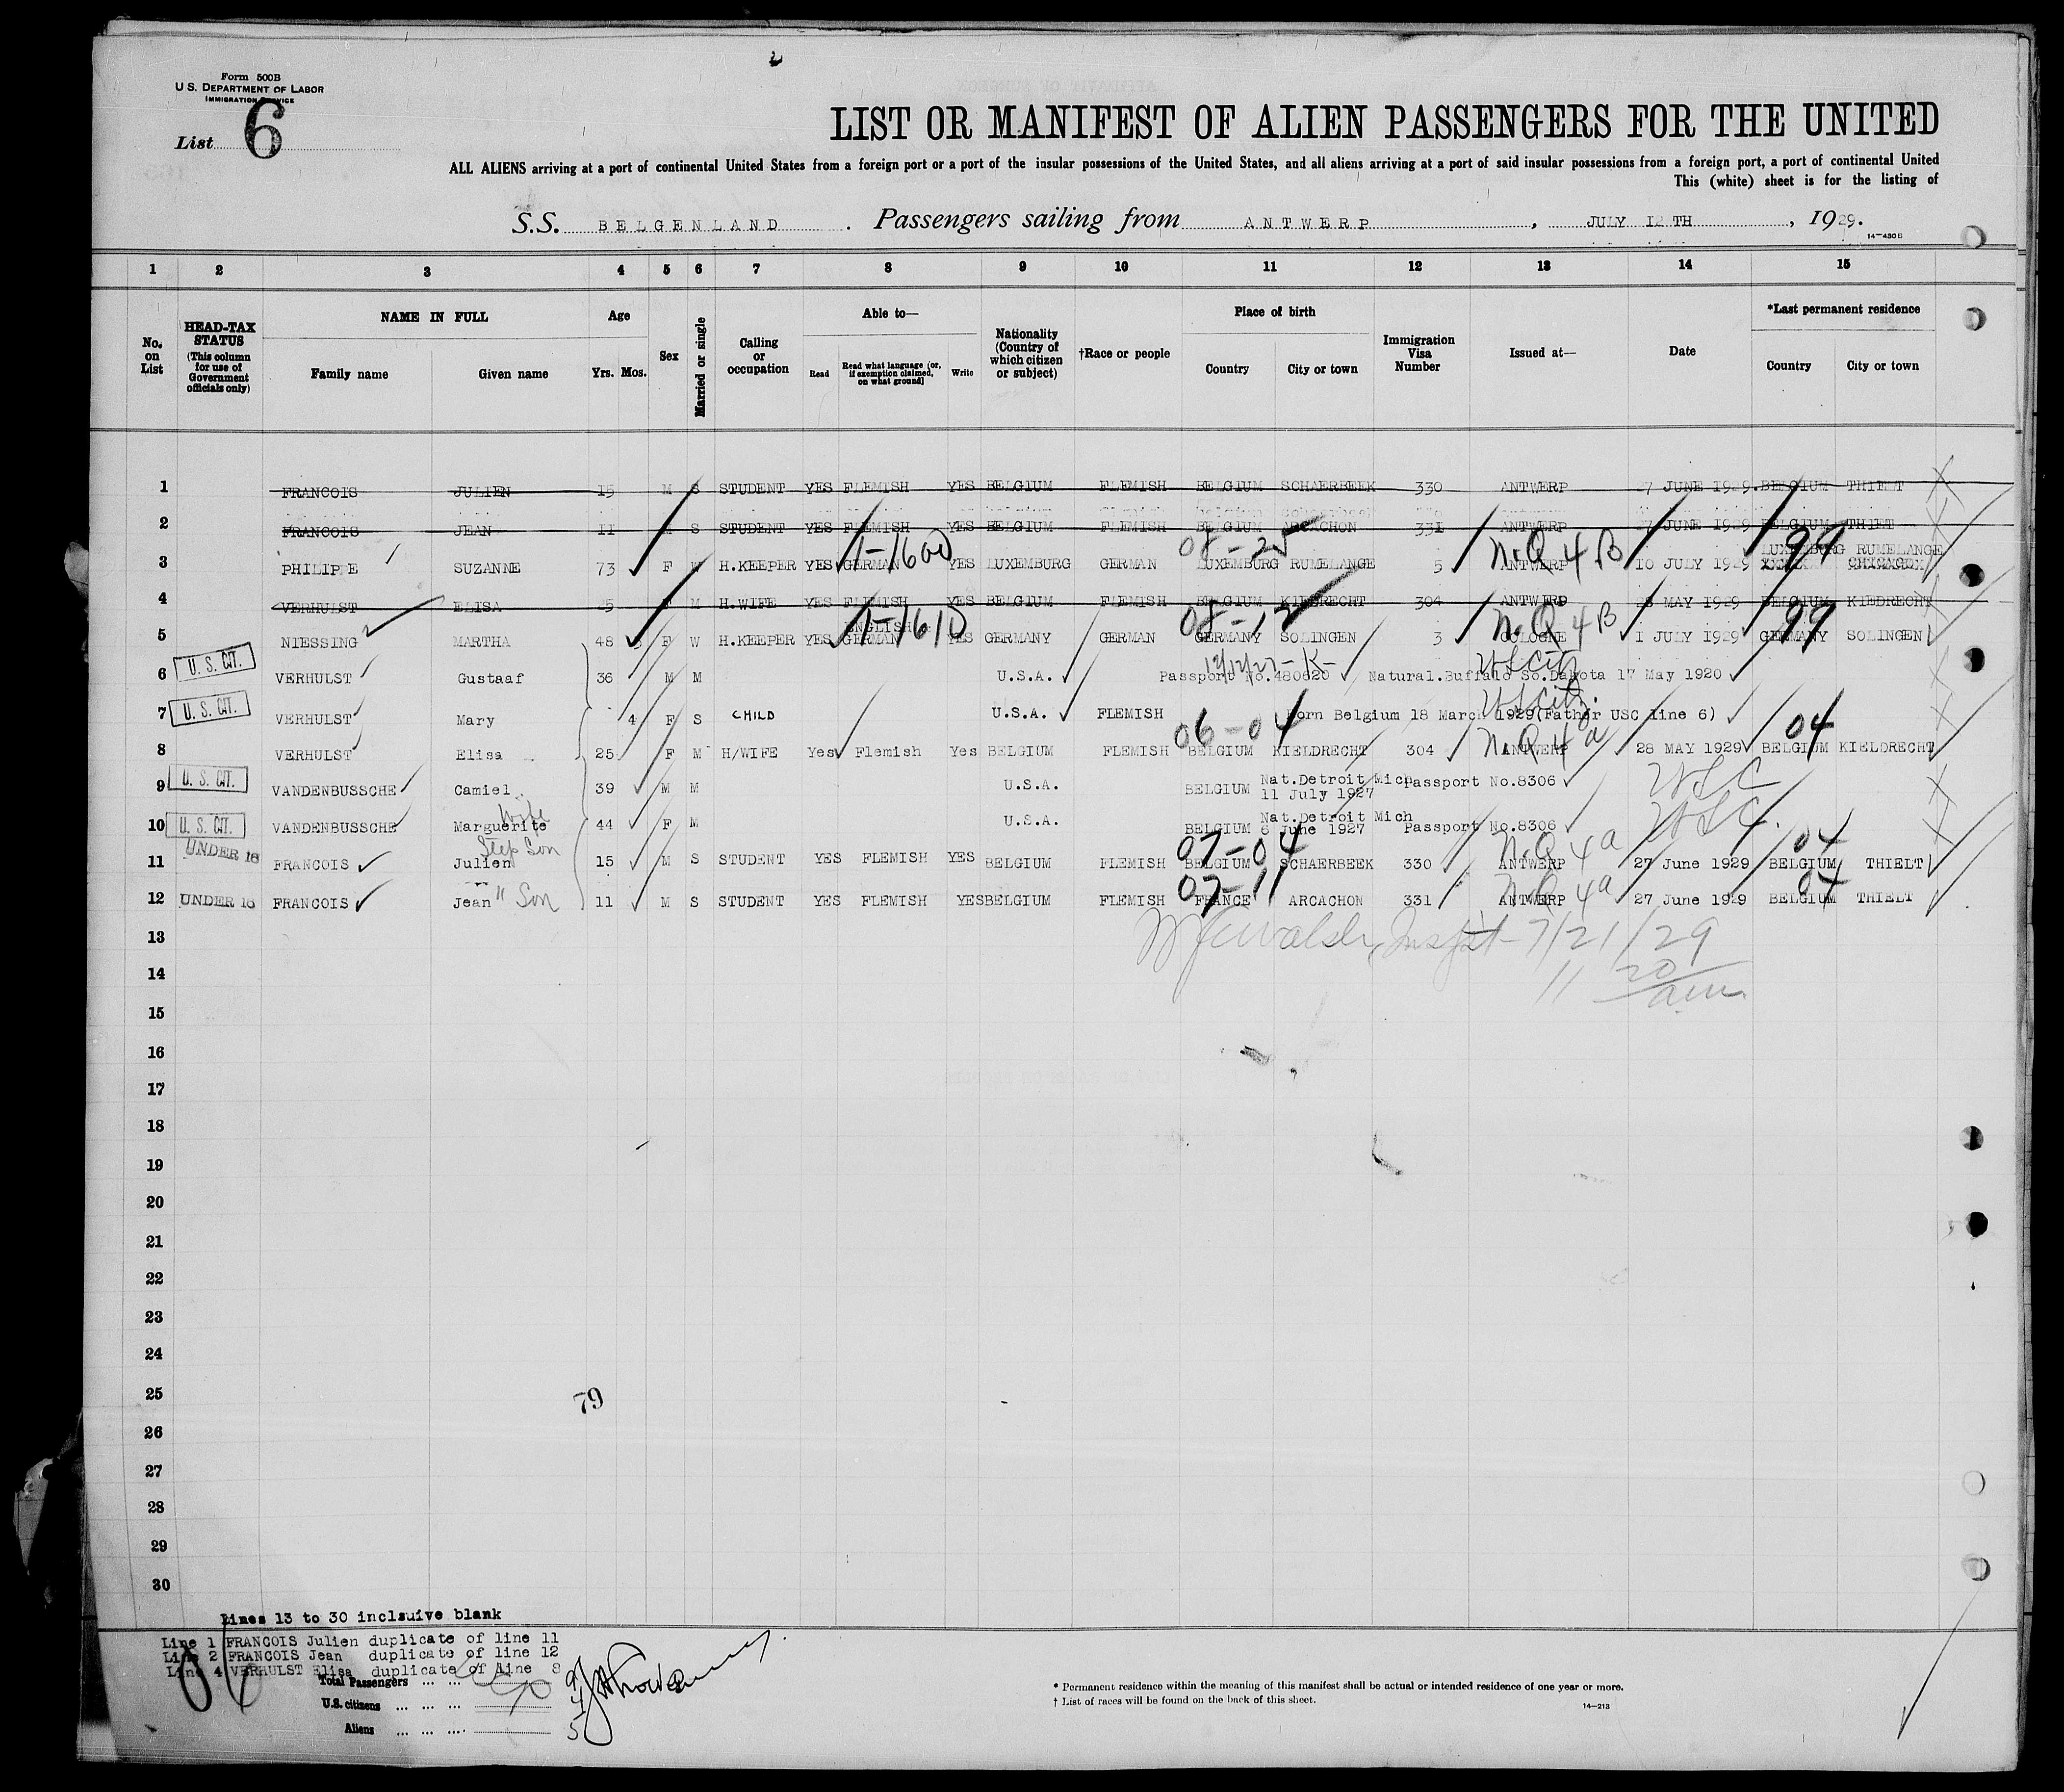 Form 500B
U. S. DEPARTMENT OF LABOR
IMMIGRATION SERVICE
List 6
LIST OR MANIFEST OF ALIEN PASSENGERS FOR THE UNITED
ALL ALIENS arriving at a port of continental United States from a foreign port or a port of the insular possessions of the United States, and all aliens arriving at a port of said insular possessions from a foreign port, a port of continental United
This (white) sheet is for the listing of
S.S. BELGENLAND. Passengers sailing from ANTWERP, JULY 12TH, 1929.
14—430B
1 2 3 4 5 6 7 8 9 10 11 12 13 14 15
No. on List
HEAD-TAX STATUS (This column for use of Government officials only)
NAME IN FULL
Family name Given name
Age
Yrs. Mos.
Sex
Married or single
Calling or occupation
Able to—
Read Read what language (or, if exemption claimed, on what ground) Write
Nationality (Country of which citizen or subject)
†Race or people
Place of birth
Country City or town
Immigration Visa Number
Issued at—
Date
*Last permanent residence
Country City or town
1 FRANCOIS JULIEN 15 M S STUDENT YES FLEMISH YES BELGIUM FLEMISH BELGIUM SCHAERBEEK 330 ANTWERP 27 JUNE 1929 BELGIUM THIELT
2 FRANCOIS JEAN 11 M S STUDENT YES FLEMISH YES BELGIUM FLEMISH BELGIUM ARCACHON 331 ANTWERP 27 JUNE 1929 BELGIUM THIELT
1-1600 08-25 N.Q 4 B 99
LUXEMBURG RUMELANGE
3 PHILIPPE SUZANNE 73 F W H.KEEPER YES GERMAN YES LUXEMBURG GERMAN LUXEMBURG RUMELANGE 5 ANTWERP 10 JULY 1929
4 VERHULST ELISA 25 F M H.WIFE YES FLEMISH YES BELGIUM FLEMISH BELGIUM KIELDRECHT 304 ANTWERP 28 MAY 1929 BELGIUM KIEDRECHT
ENGLISH 1-1610 N.Q 4 B 99
5 NIESSING MARTHA 48 F W H.KEEPER YES GERMAN YES GERMANY GERMAN GERMANY SOLINGEN 3 COLOGNE 1 JULY 1929 GERMANY SOLINGEN
U. S. CIT.
6 VERHULST Gustaaf 36 M M U.S.A. Passport No.480620 Natural.Buffalo So.Dakota 17 May 1920
U. S. CIT.
7 VERHULST Mary 4 F S CHILD U.S.A. FLEMISH Born Belgium 18 March 1929(Father USC line 6)
06-04 N.Q 4a 04
8 VERHULST Elisa 25 F M H/WIFE Yes Flemish Yes BELGIUM FLEMISH BELGIUM KIELDRECHT 304 ANTWERP 28 MAY 1929 BELGIUM KIELDRECHT
U. S. CIT.
9 VANDENBUSSCHE Camiel 39 M M U.S.A. BELGIUM Nat.Detroit Mich 11 July 1927 Passport No.8306 USC
Wife
U. S. CIT.
10 VANDENBUSSCHE Marguerite 44 F M U.S.A. BELGIUM Nat.Detroit Mich 6 June 1927 Passport No.8306 USC.
Step Son
07-04 N.Q 4a 04
11 UNDER 16 FRANCOIS Julien 15 M S STUDENT YES FLEMISH YES BELGIUM FLEMISH BELGIUM SCHAERBEEK 330 ANTWERP 27 June 1929 BELGIUM THIELT
07-11 N.Q 4a 04
12 UNDER 16 FRANCOIS Jean " Son 11 M S STUDENT YES FLEMISH YES BELGIUM FLEMISH FRANCE ARCACHON 331 ANTWERP 27 June 1929 BELGIUM THIELT
13
Walsh, Inspt- 7/21/29
14
11 20/am
15
16
17
18
19
20
21
22
23
24
25
79
26
27
28
29
30
Lines 13 to 30 inclsuive blank
Line 1 FRANCOIS Julien duplicate of line 11
Line 2 FRANCOIS Jean duplicate of line 12
Line 4 VERHULST Elisa duplicate of line 8
Total Passengers ... ... 9
U.S. citizens ... ... ... 4
Aliens ... ... .... 5
* Permanent residence within the meaning of this manifest shall be actual or intended residence of one year or more.
† List of races will be found on the back of this sheet.
14—213